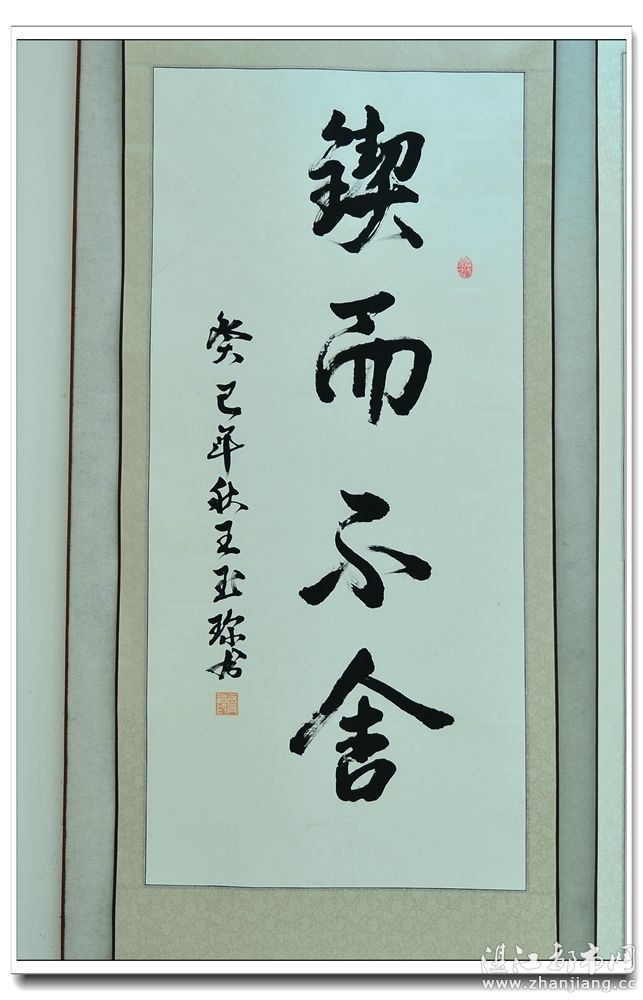 锲而不舍
癸巳年秋王玉琮书
湛江都市网
www.zhanjiang.cc